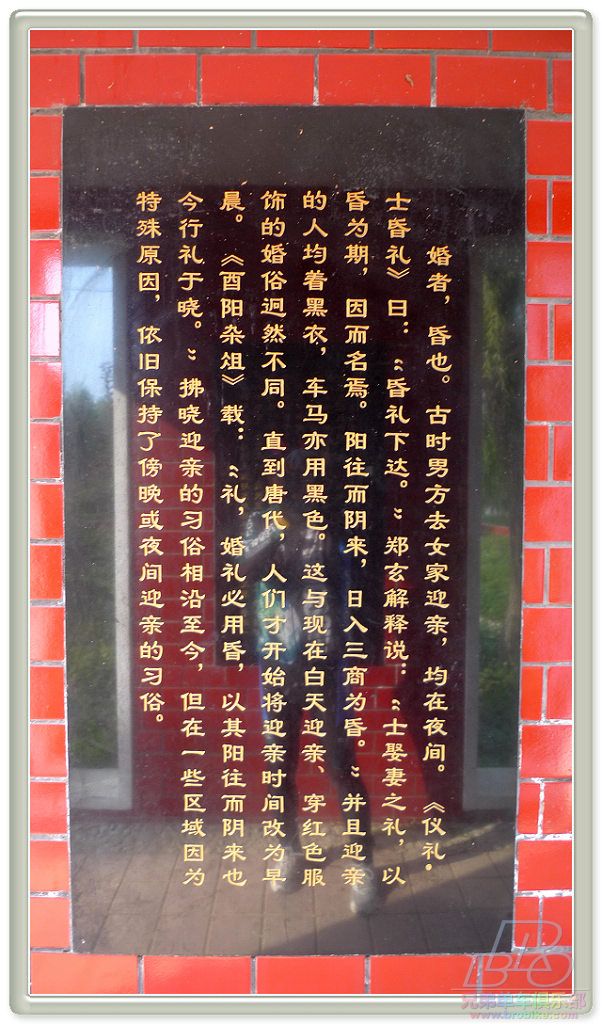 婚者，昏也。古时男方去女家迎亲，均在夜间。《仪礼·
士昏礼》曰：“昏礼下达。”郑玄解释说：“士娶妻之礼，以
昏为期，因而名焉。阳往而阴来，日入三商为昏。”并且迎亲
的人均着黑衣，车马亦用黑色。这与现在白天迎亲、穿红色服
饰的婚俗迥然不同。直到唐代，人们才开始将迎亲时间改为早
晨。《酉阳杂俎》载：“礼，婚礼必用昏，以其阳往而阴来也
今行礼于晓。”拂晓迎亲的习俗相沿至今，但在一些区域因为
特殊原因，依旧保持了傍晚或夜间迎亲的习俗。
兄弟单车俱乐部
www.brobike.com